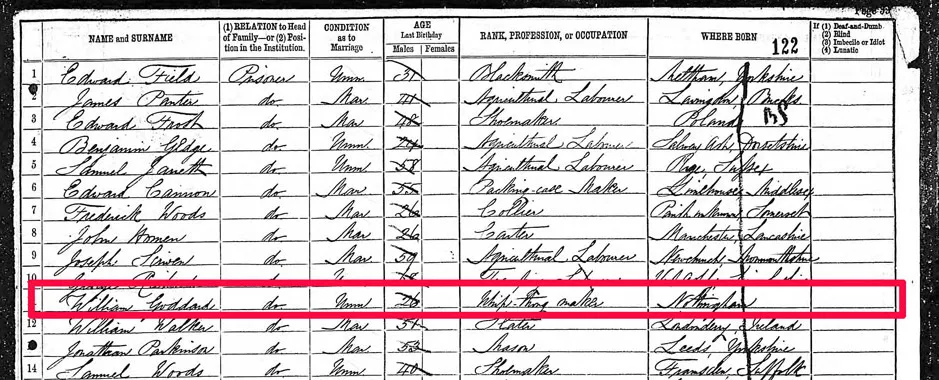 Page 33
NAME and SURNAME (1) RELATION to Head of Family—or (2) Position in the Institution. CONDITION as to Marriage AGE Last Birthday Males Females RANK, PROFESSION, or OCCUPATION WHERE BORN 122 If (1) Deaf-and-Dumb (2) Blind (3) Imbecile or Idiot (4) Lunatic
1 Edward Field Prisoner Unm 31 Blacksmith Yorkshire
2 James Panter do Mar 41 Agricultural Labourer Bucks
3 Edward Frost do Mar 48 Shoemaker Poland
4 Benjamin Gedge do Unm 24 Agricultural Labourer Dorsetshire
5 Samuel Jarrett do Unm 58 Agricultural Labourer Sussex
6 Edward Cannon do Mar 55 Packing-case Maker Limehouse Middlesex
7 Frederick Woods do Mar 26 Collier Somerset
8 John do Mar 26 Carter Manchester Lancashire
9 Joseph do Mar 59 Agricultural Labourer Newchurch Monmouthshire
10
William Goddard do Unm 26 Whip-thong maker Nottingham
12 William Walker do Mar 51 Slater Londonderry Ireland
Jonathan Parkinson do Mar 53 Mason Leeds Yorkshire
14 Samuel Woods do Mar 40 Shoemaker Framsden Suffolk